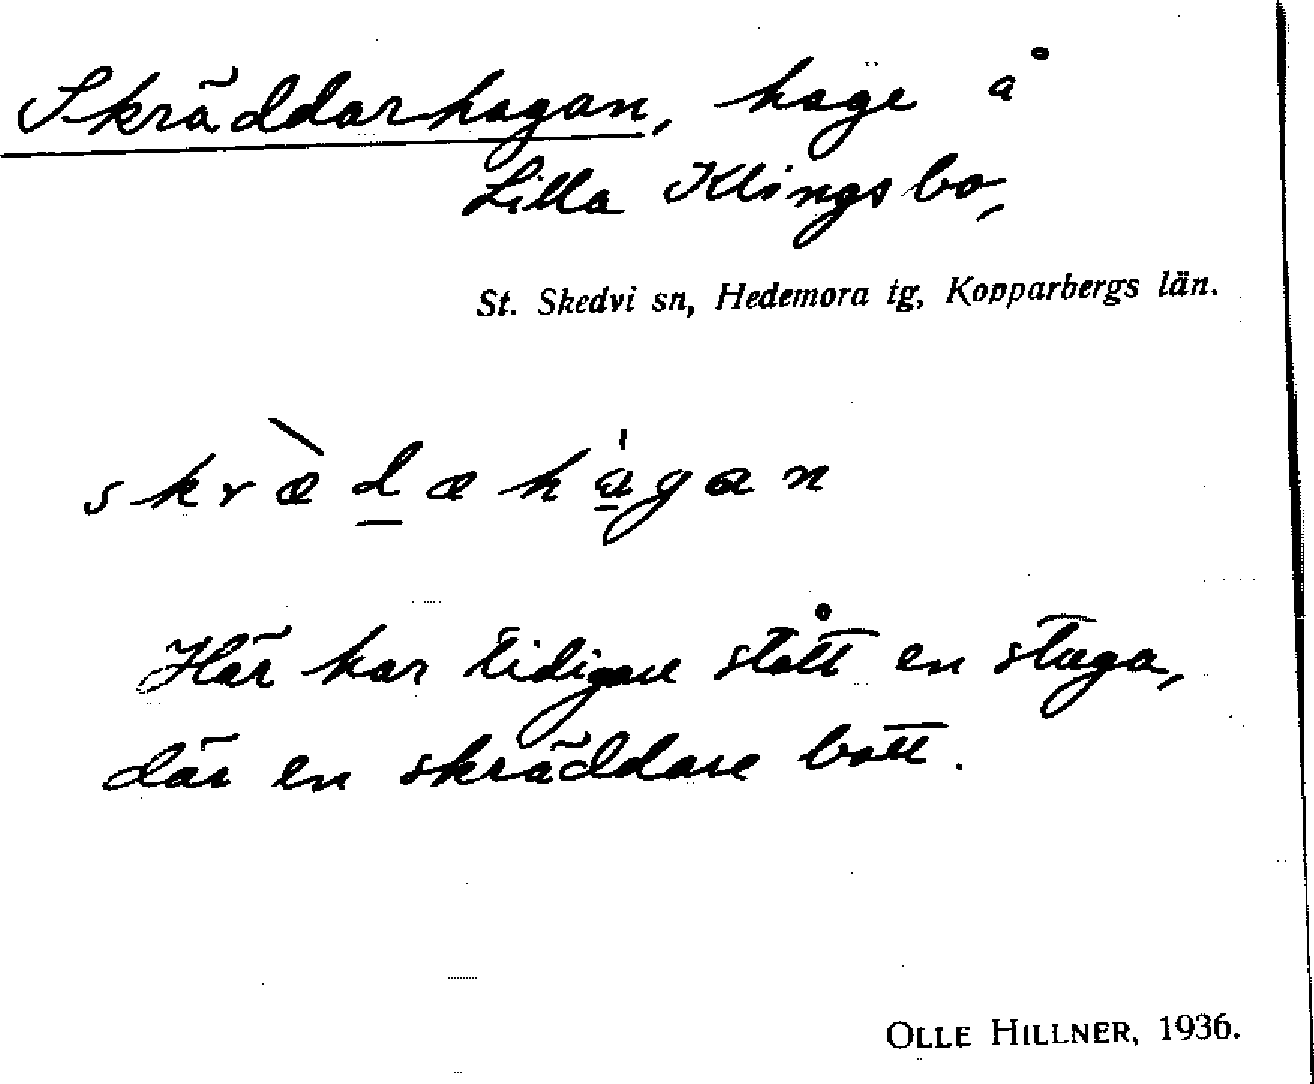 Skräddarhagan, hage å
Lilla Klingsbo,
St. Skedvi sn, Hedemora tg, Kopparbergs län.
skræ̀dæhàgan
Här har tidigare stått en stuga,
där en skräddare bott.
OLLE HILLNER, 1936.